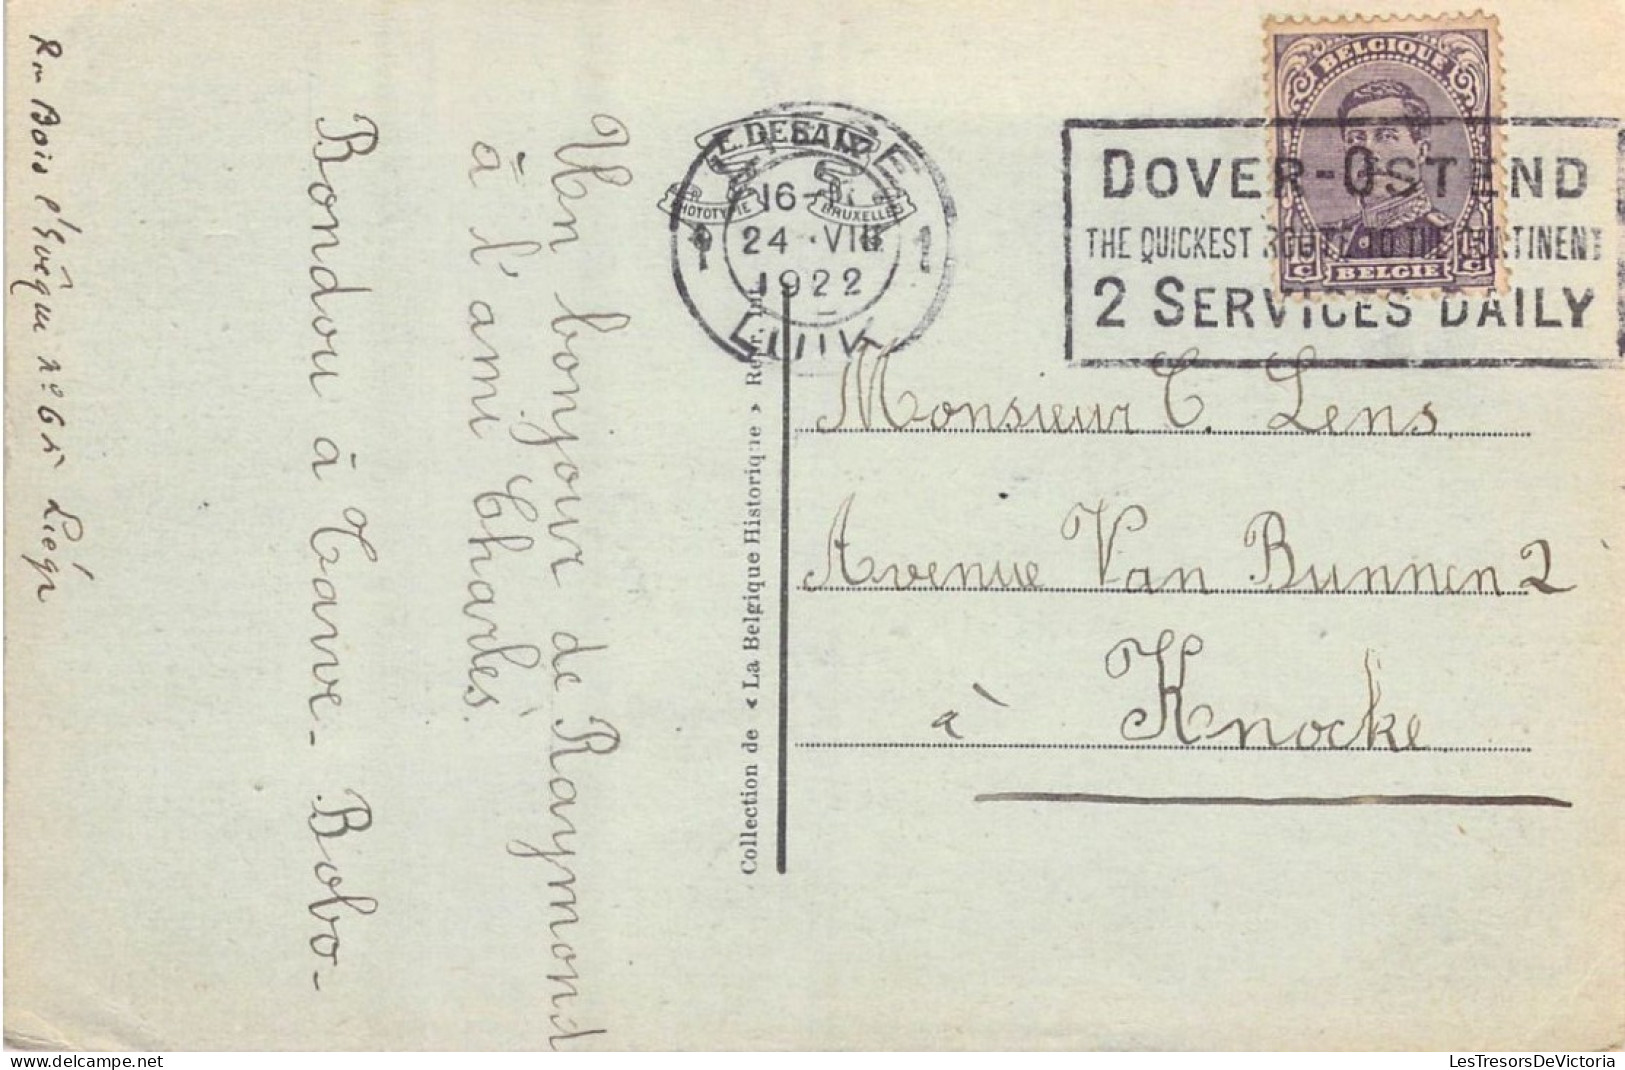 Rue Bois l'Evêque n° 65 Liège
Un bonjour de Raymond
à l'ami Charles.
Bondou à Tanve. Bobo-
E. DESAIX
PHOTOTYPIE
BRUXELLES
1 1
16-
24 VIII
1922
LUIK
Collection de « La Belgique Historique »
BELGIQUE
15 C
C BELGIE C
DOVER-OSTEND
THE QUICKEST ROUTE TO THE CONTINENT
2 SERVICES DAILY
Monsieur C. Lens
Avenue Van Bunnen 2
à Knocke
LesTresorsDeVictoria.com
LesTresorsDeVictoria